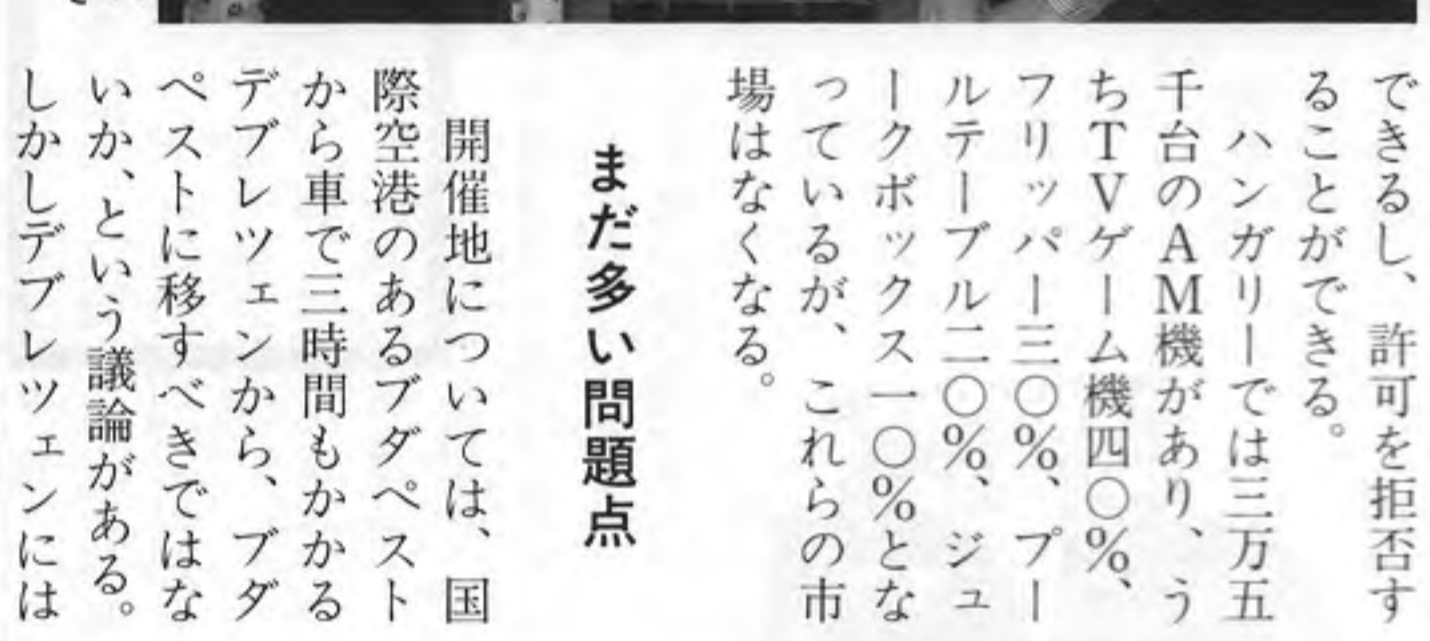 できるし、許可を拒否す
ることができる。
ハンガリーでは三万五
千台のAM機があり、う
ちTVゲーム機四〇%、
フリッパー三〇%、プー
ルテーブル二〇%、ジュ
ークボックス一〇%とな
っているが、これらの市
場はなくなる。
まだ多い問題点
開催地については、国
際空港のあるブダペスト
から車で三時間もかかる
デブレツェンから、ブダ
ペストに移すべきではな
いか、という議論がある。
しかしデブレツェンには